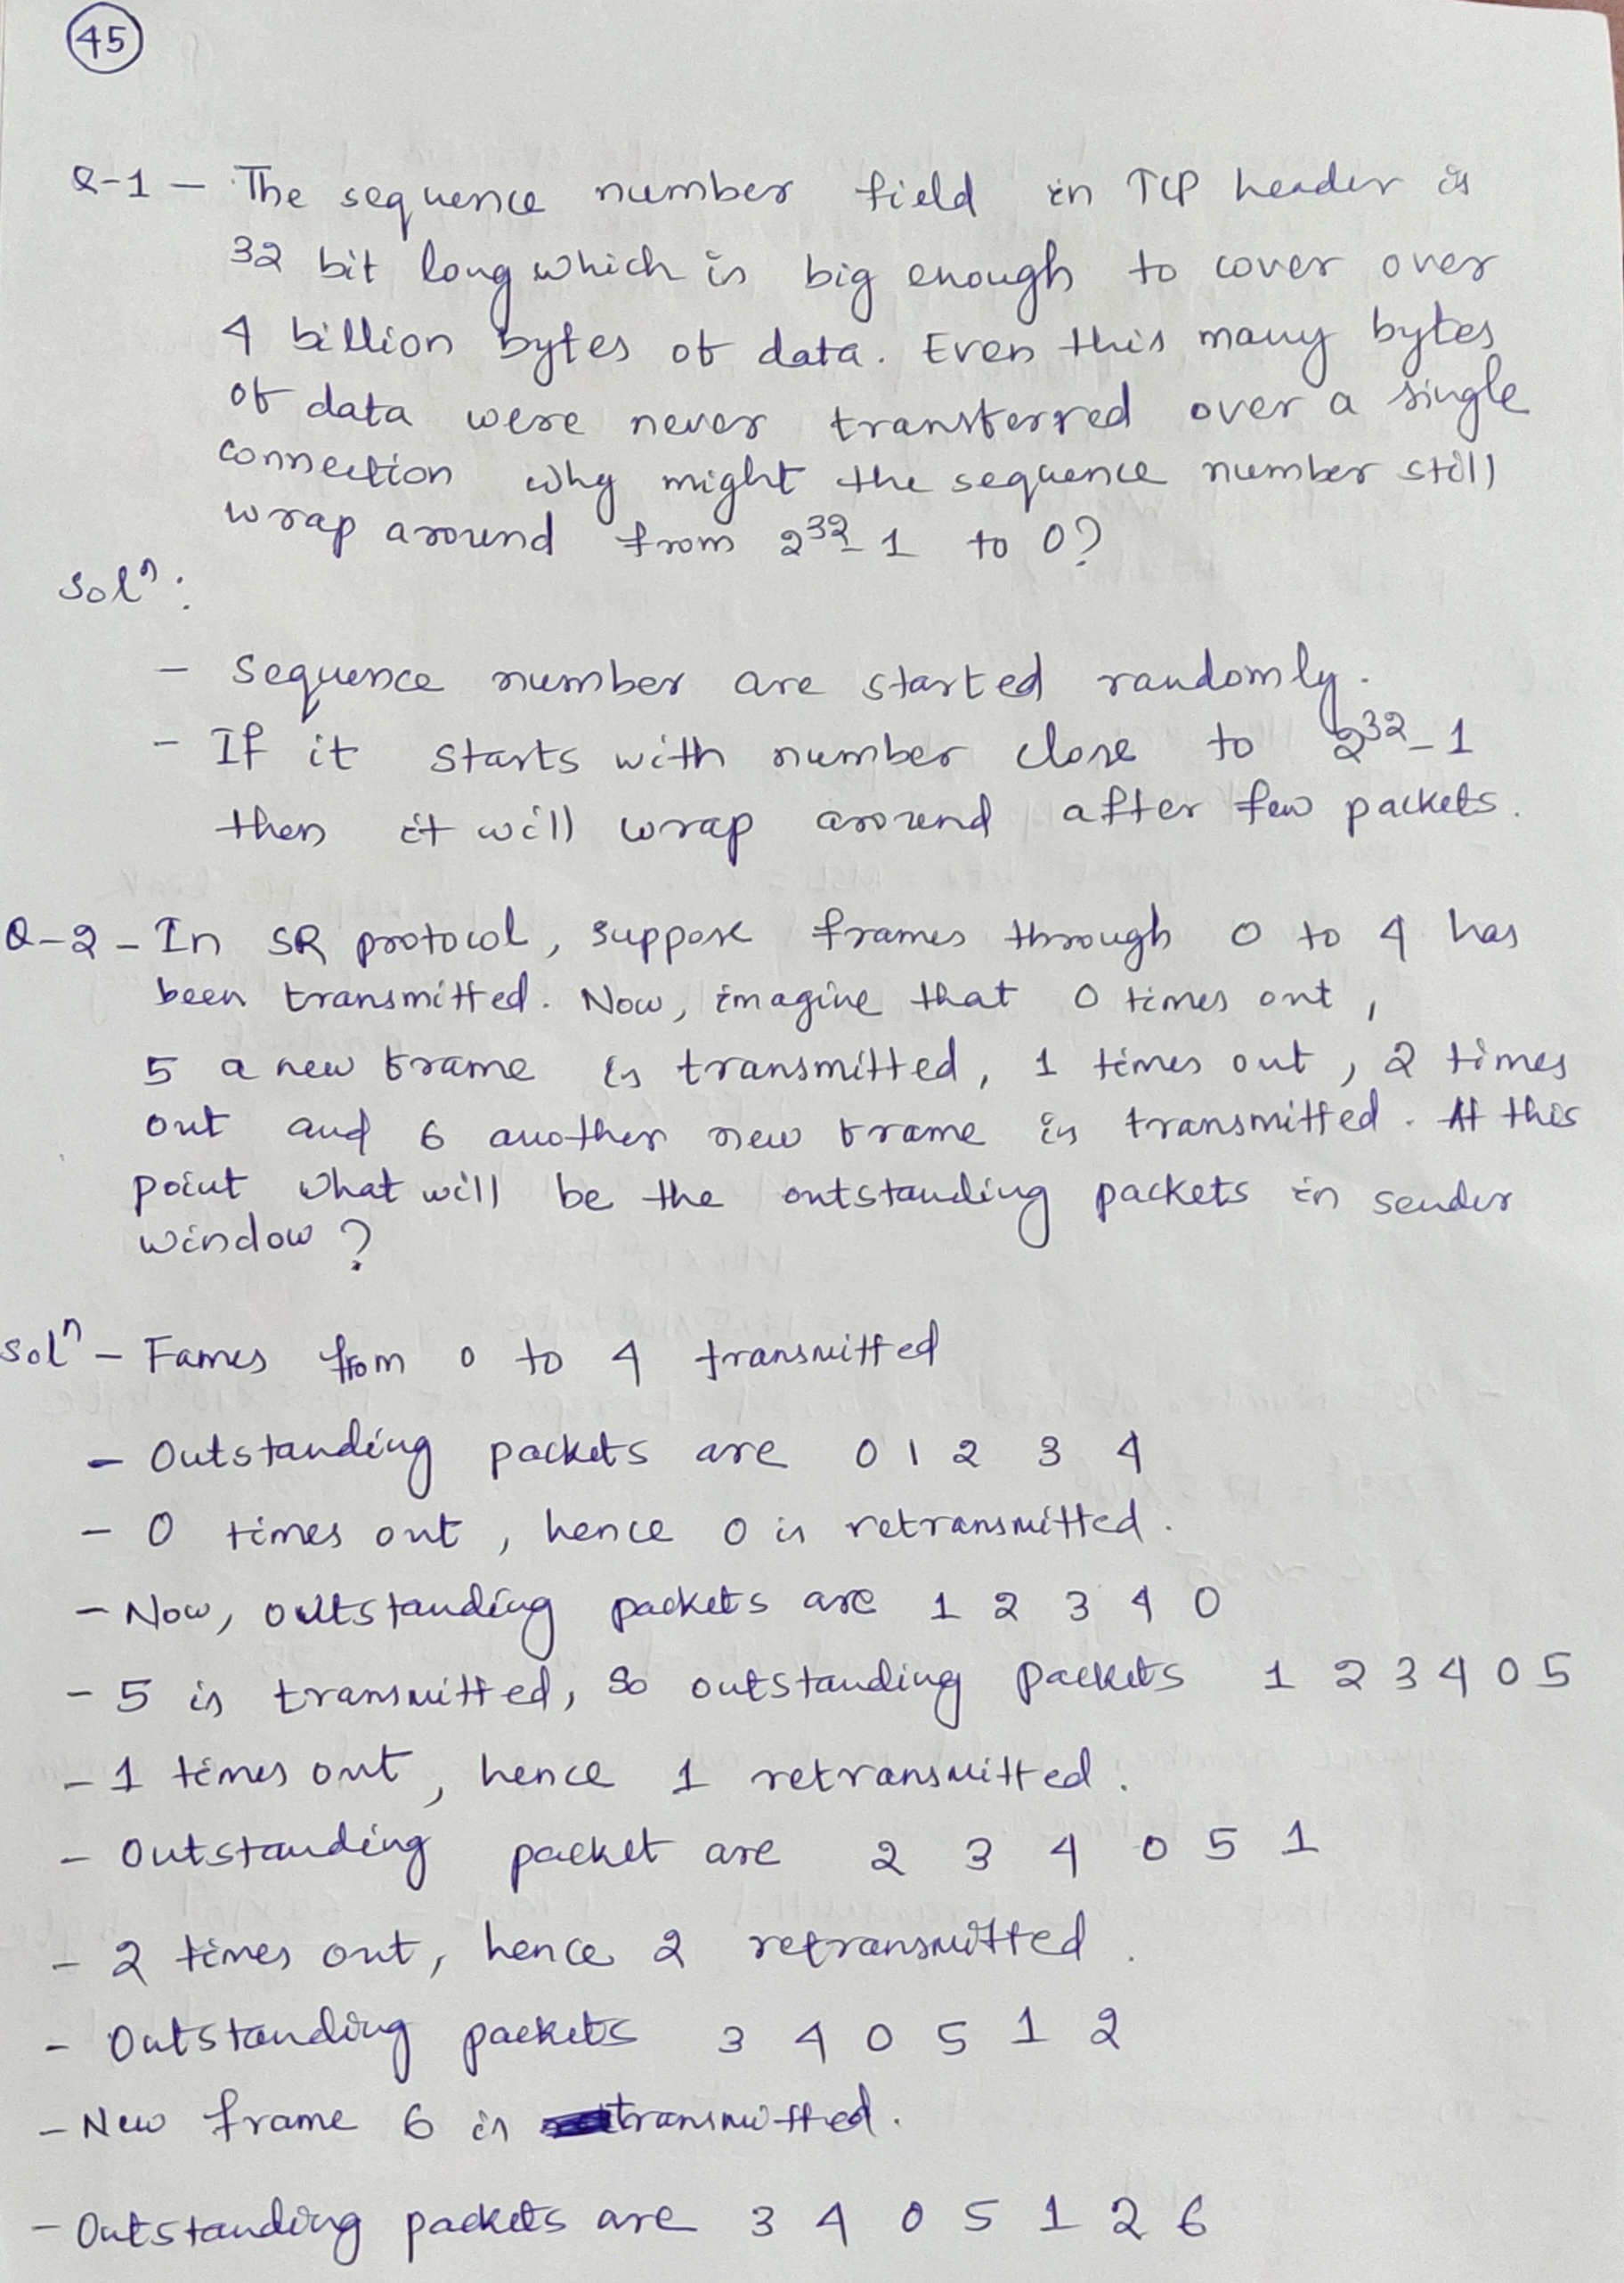 45
Q-1 - The sequence number field in TCP header is
32 bit long which is big enough to cover over
4 billion bytes of data. Even this many bytes
of data were never transferred over a single
connection why might the sequence number still
wrap around from 2^32-1 to 0?
Solⁿ:
- Sequence number are started randomly.
- If it starts with number close to 2^32-1
then it will wrap around after few packets.
Q-2 - In SR protocol, suppose frames through 0 to 4 has
been transmitted. Now, imagine that 0 times out,
5 a new frame is transmitted, 1 times out, 2 times
out and 6 another new frame is transmitted. At this
point what will be the outstanding packets in sender
window?
Solⁿ - Fames from 0 to 4 transmitted
- Outstanding packets are 0 1 2 3 4
- 0 times out, hence 0 is retransmitted.
- Now, outstanding packets are 1 2 3 4 0
- 5 is transmitted, So outstanding packets 1 2 3 4 0 5
- 1 times out, hence 1 retransmitted.
- Outstanding packet are 2 3 4 0 5 1
- 2 times out, hence 2 retransmitted.
- Outstanding packets 3 4 0 5 1 2
- New frame 6 is transmitted.
- Outstanding packets are 3 4 0 5 1 2 6